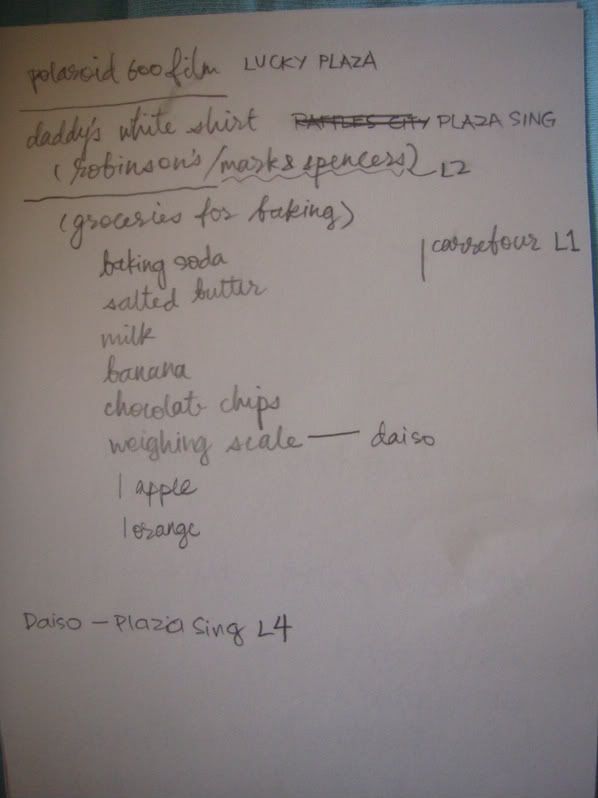 polaroid 600 film LUCKY PLAZA
daddy's white shirt RAFFLES CITY PLAZA SING
(robinson's/marks spencers) L2
(groceries for baking)
carrefour L1
baking soda
salted butter
milk
banana
chocolate chips
weighing scale — daiso
1 apple
1 orange
Daiso — Plaza Sing L4